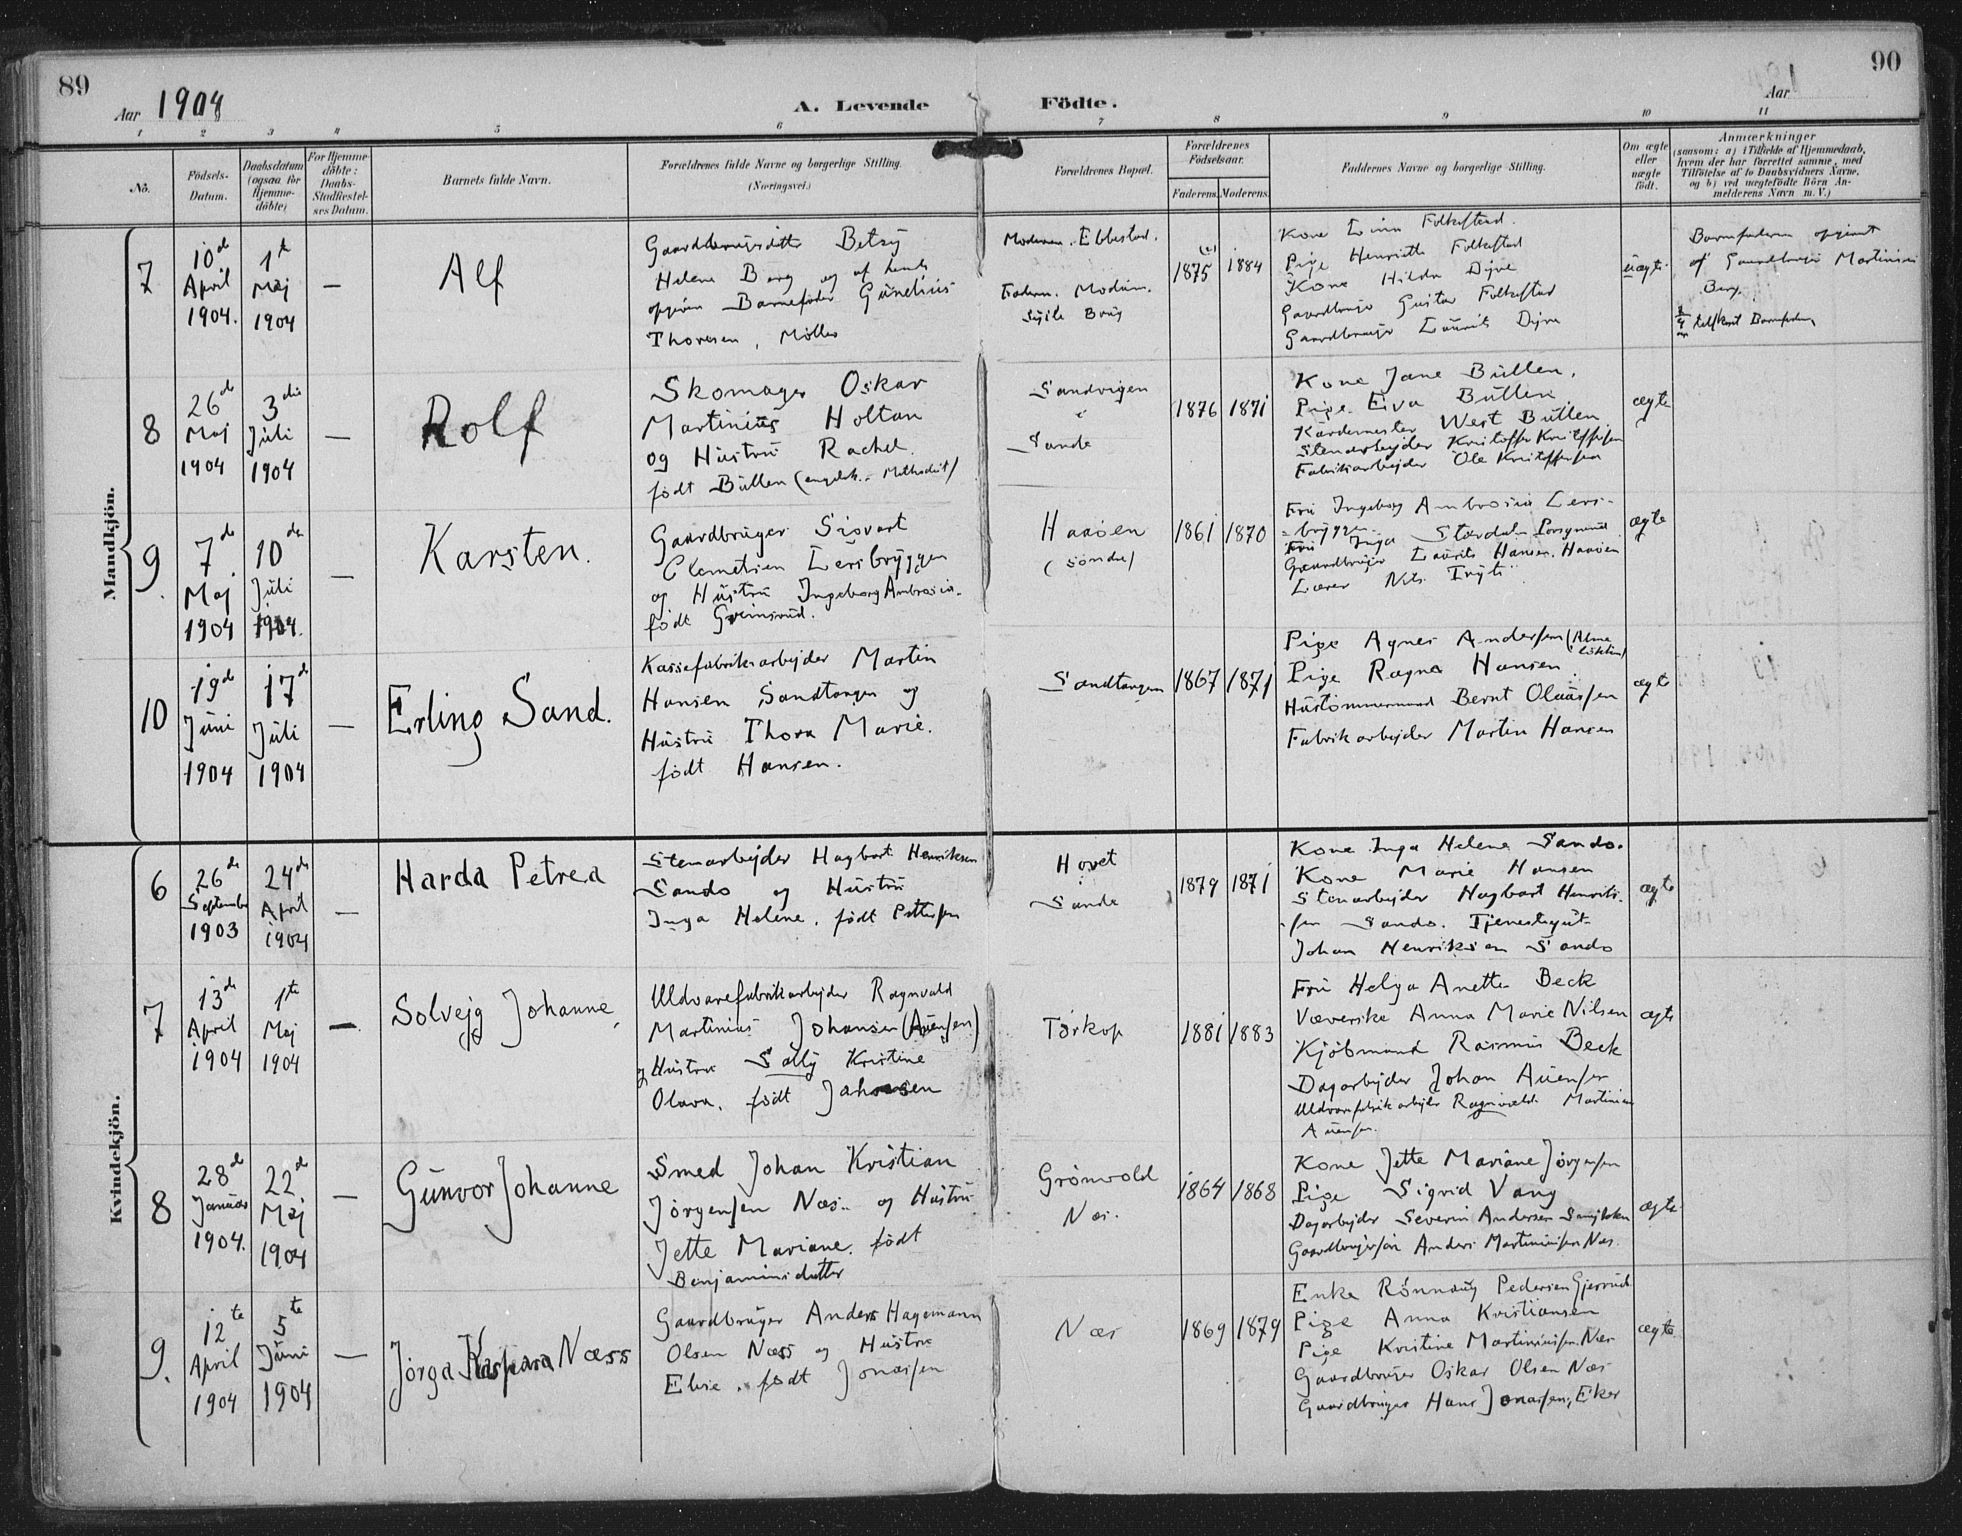 89
90
Aar 1904
A. Levende Födte.
Aar
1 2 3 4 5 6 7 8 9 10 11
No.
Födsels-Datum.
Daabsdatum (ogsaa for Hjemmedöbte)
For Hjemmedöbte: Daabs-Stadfæstelses Datum.
Barnets fulde Navn.
Forældrenes fulde Navne og borgerlige Stilling. (Næringsvei.)
Forældrenes Bopæl.
Forældrenes Födselsaar.
Faderens.
Moderens.
Faddernes Navne og borgerlig Stilling.
Om ægte eller uægte födt.
Anmærkninger
(saasom: a) i Tilfælde af Hjemmedaab, hvem der har forrettet samme, med Tilföielse af to Daabsvidners Navne, og b) ved uægtefödte Börn Anmelderens Navn m. V.)
Mandkjön.
7
10de April 1904.
1te Maj 1904
—
Alf
Betzy
Helene Berg og af hende
opgiven Barnefader
Thoresen, Møller
Moderen. Ebbestad.
Faderen. Modum.
1875
1884
Kone Folkestad.
Pige Henriette Folkestad
Kone Hilda Dyve
Gaardbruger Gustav Folkestad
Gaardbruger Laurits Dyve
uægte
Barnefaderen opgivet
af Gaardbruger Martinius
Berg.
8
26de Maj 1904
3die Juli 1904
—
Rolf
Skomager Oskar
Martinius Holtan
og Hustru Rachel
født Bullen (engelsk. Methodist)
Sandvigen
i
Sande
1876
1871
Kone Jane Bullen.
Pige Eva Bullen
West Bullen
Stenarbejder
Fabrikarbejder Ole Kristoffersen
ægte
9.
7de Maj 1904
10de Juli 1904.
—
Karsten.
Gaardbruger Sigvart
Clemetsen Lersbryggen
og Hustru Ingeborg Ambrosia.
født Greinsrud.
Haaøen
(søndre)
1861
1870
Fru Ingeborg Ambrosia Lers-
-bryggen
Fru Inga Porsgrund
Gaardbruger Laurits Hansen, Haaøen
Lærer Nils
ægte
10
19de Juni 1904
17de Juli 1904
—
Erling Sand.
Kassefabrikarbejder Martin
Hansen Sandtangen og
Hustru Thora Marie.
født Hansen.
Sandtangen
1867
1871
Pige Agnes Andersen
Pige Ragna Hansen
Hustømmermand Bernt Olaussen
Fabrikarbejder Martin Hansen
ægte
Kvindekjön.
6
26de September 1903
24de April 1904
—
Harda Petrea
Stenarbejder Hagbart Henriksen
Sando og Hustru
Inga Helene. født Pettersen
Hovet
Sande
1879
1871
Kone Inga Helene Sando.
Kone Marie Hansen
Stenarbejder Hagbart Henrik-
-sen Sando. Tjenestegut
Johan Henriksen Sando
ægte
7
13de April 1904
1te Maj 1904
—
Solvejg Johanne
Uldvarefabrikarbejder Ragnvald
Martinius Johansen (Auensen)
og Hustru Sally Kristine
Olava. født Johansen
Tørkop
1881
1883
Fru Helga Anette Beck
Væverske Anna Marie Nilsen
Kjøbmand Rasmus Beck
Dagarbejder Johan Auensen
Uldvarefabrikarbejder Ragnvald Martinius
Auensen.
ægte
8
28de Januar 1904.
22de Maj 1904
—
Gunvor Johanne
Smed Johan Kristian
Jørgensen Næs. og Hustru
Jette Mariane. født
Benjaminsdatter
Grønvold
Næs.
1864
1868
Kone Jette Mariane Jørgensen
Pige Sigrid Vang
Dagarbejder Severin Andersen
Gaardbruger Anders Martiniussen Næs.
ægte.
9.
12te April 1904
5te Juni 1904
—
Jørga Kaspara Næss
Gaardbruger Anders Hagemann
Olsen Næss og Hustru
Elise. født Jonassen
Næs
1869
1879
Enke Rønnaug Pedersen Gjerrud
Pige Anna Kristiansen
Pige Kristine Martiniussen Næs
Gaardbruger Oskar Olsen Næs
Gaardbruger Hans Jonassen, Eker
ægte